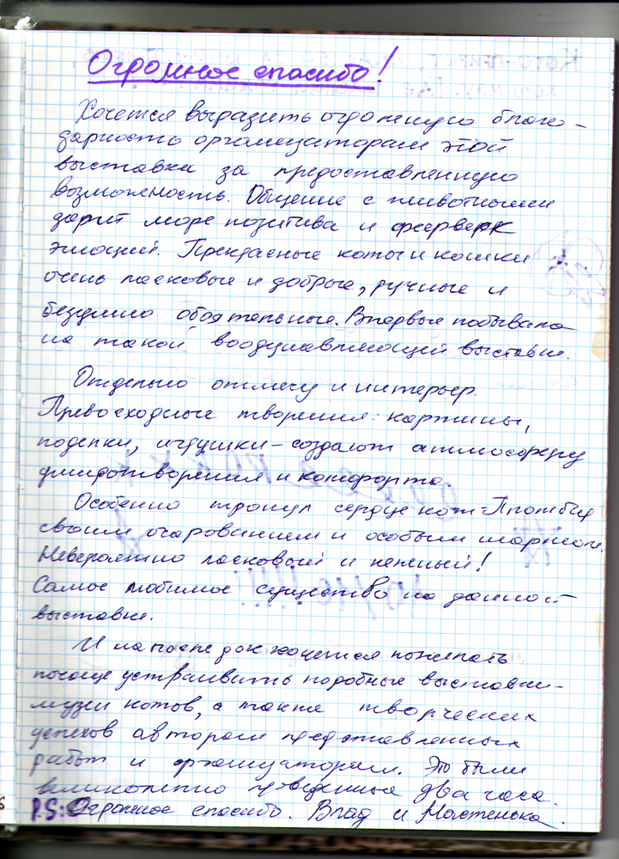 Огромное спасибо!
Хочется выразить огромную благо-
дарность организаторам этой
выставки за предоставленную
возможность. Общение с животными
дарит море позитива и феерверк
эмоций. Прекрасные коты и кошки
очень ласковые и добрые, ручные и
безумно обоятельные. Впервые побывала
на такой воодушавляющей выставке.
Отдельно отмечу и интерьер.
Превосходные творения: картины,
поделки, игрушки – создают атмосферу
умиротворения и комфорта.
Особенно тронул сердце кот
своим очарованием и особым шармом.
Невероятно ласковый и нежный!
Самое любимое существо на данной
выставке.
И напоследок хочется пожелать
почаще устраивать подобные выставки-
музеи котов, а также творческих
успехов авторам представленных
работ и организаторам. Это были
великолепно проведенные два часа.
P.S: Огромное спасибо. Влад и Настенька.